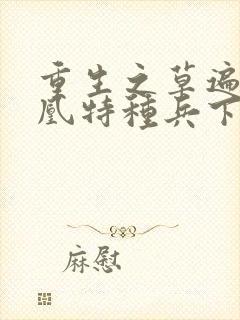 重生之草遍
凰特種兵下
麻慰